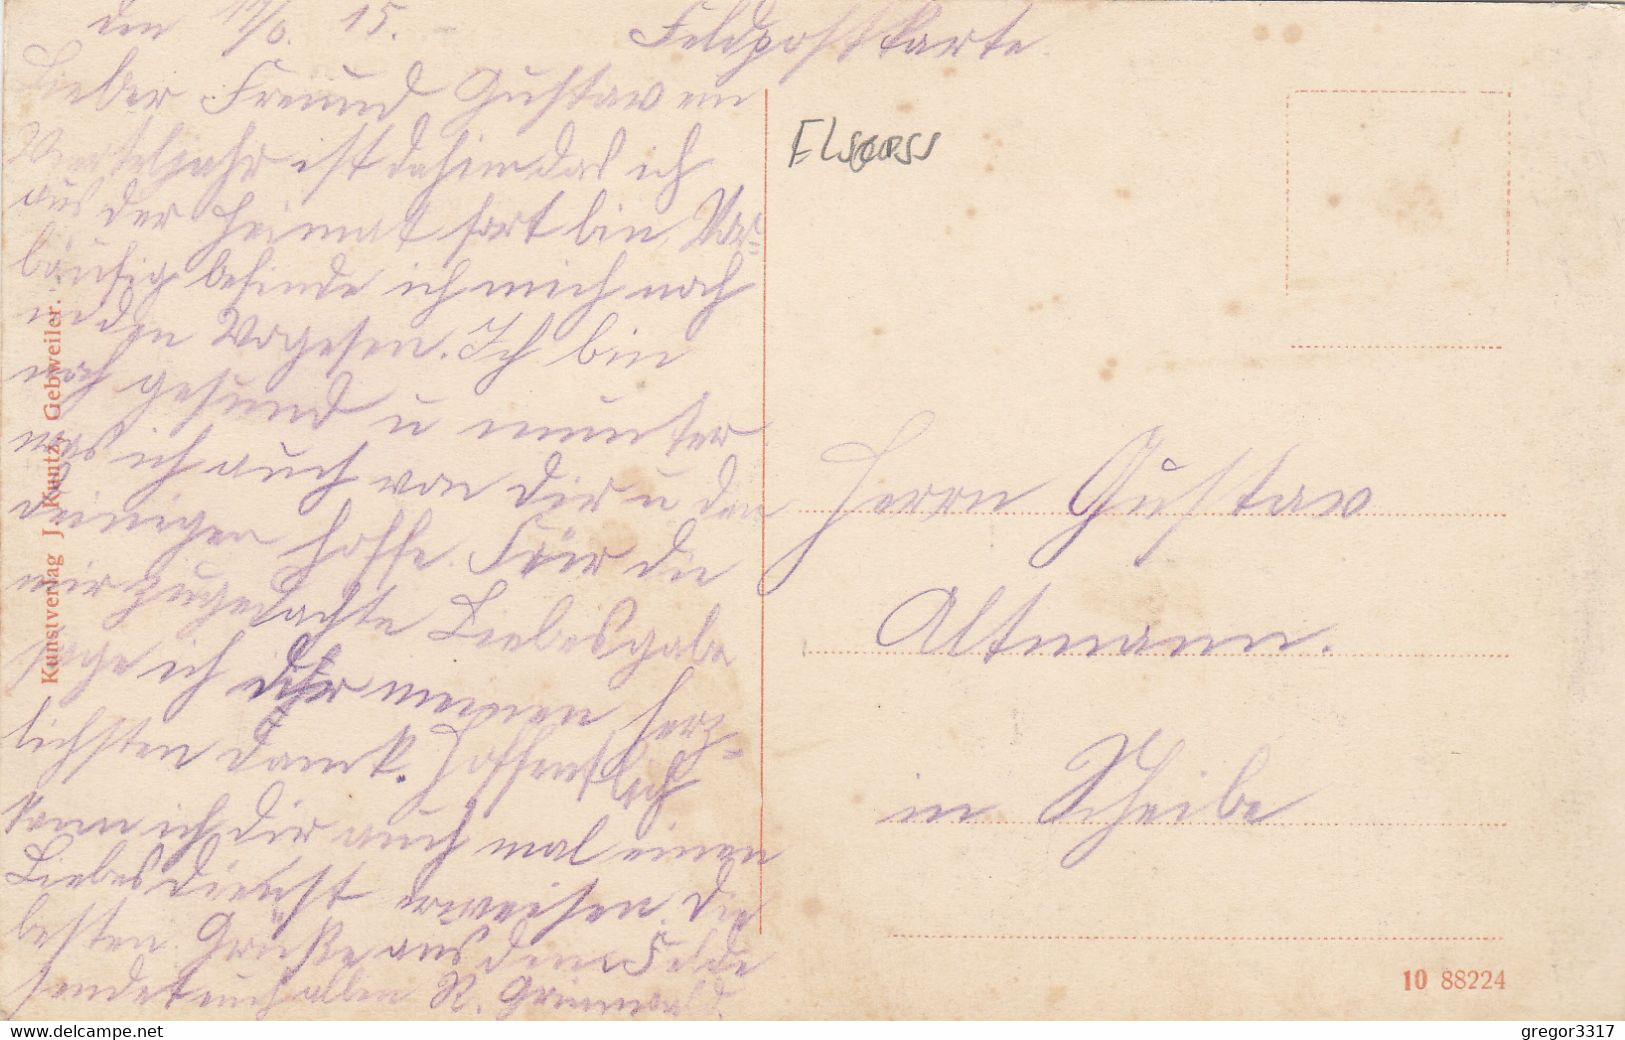 den 17/6. 15. Feldpostkarte
Lieber Freund Gustav ein
Vierteljahr ist dahin das ich
aus der Heimat fort bin. Vor=
läufig befinde ich mich noch
in den Vogesen. Ich bin
noch gesund u munter
was ich auch von dir u den
deinigen hoffe. Für die
mir zugedachte Liebesgabe
sage ich dir meinen herz=
lichsten Dank. Hoffentlich
kann ich dir auch mal einen
Liebesdienst erweisen. Die
besten Grüße aus dem Felde
sendet euch allen R. Grünwald.
Kunstverlag J. Kuntz, Gebweiler.
Elsass
Herrn Gustav
Altmann.
in Scheibe
10 88224
www.delcampe.net
gregor3317